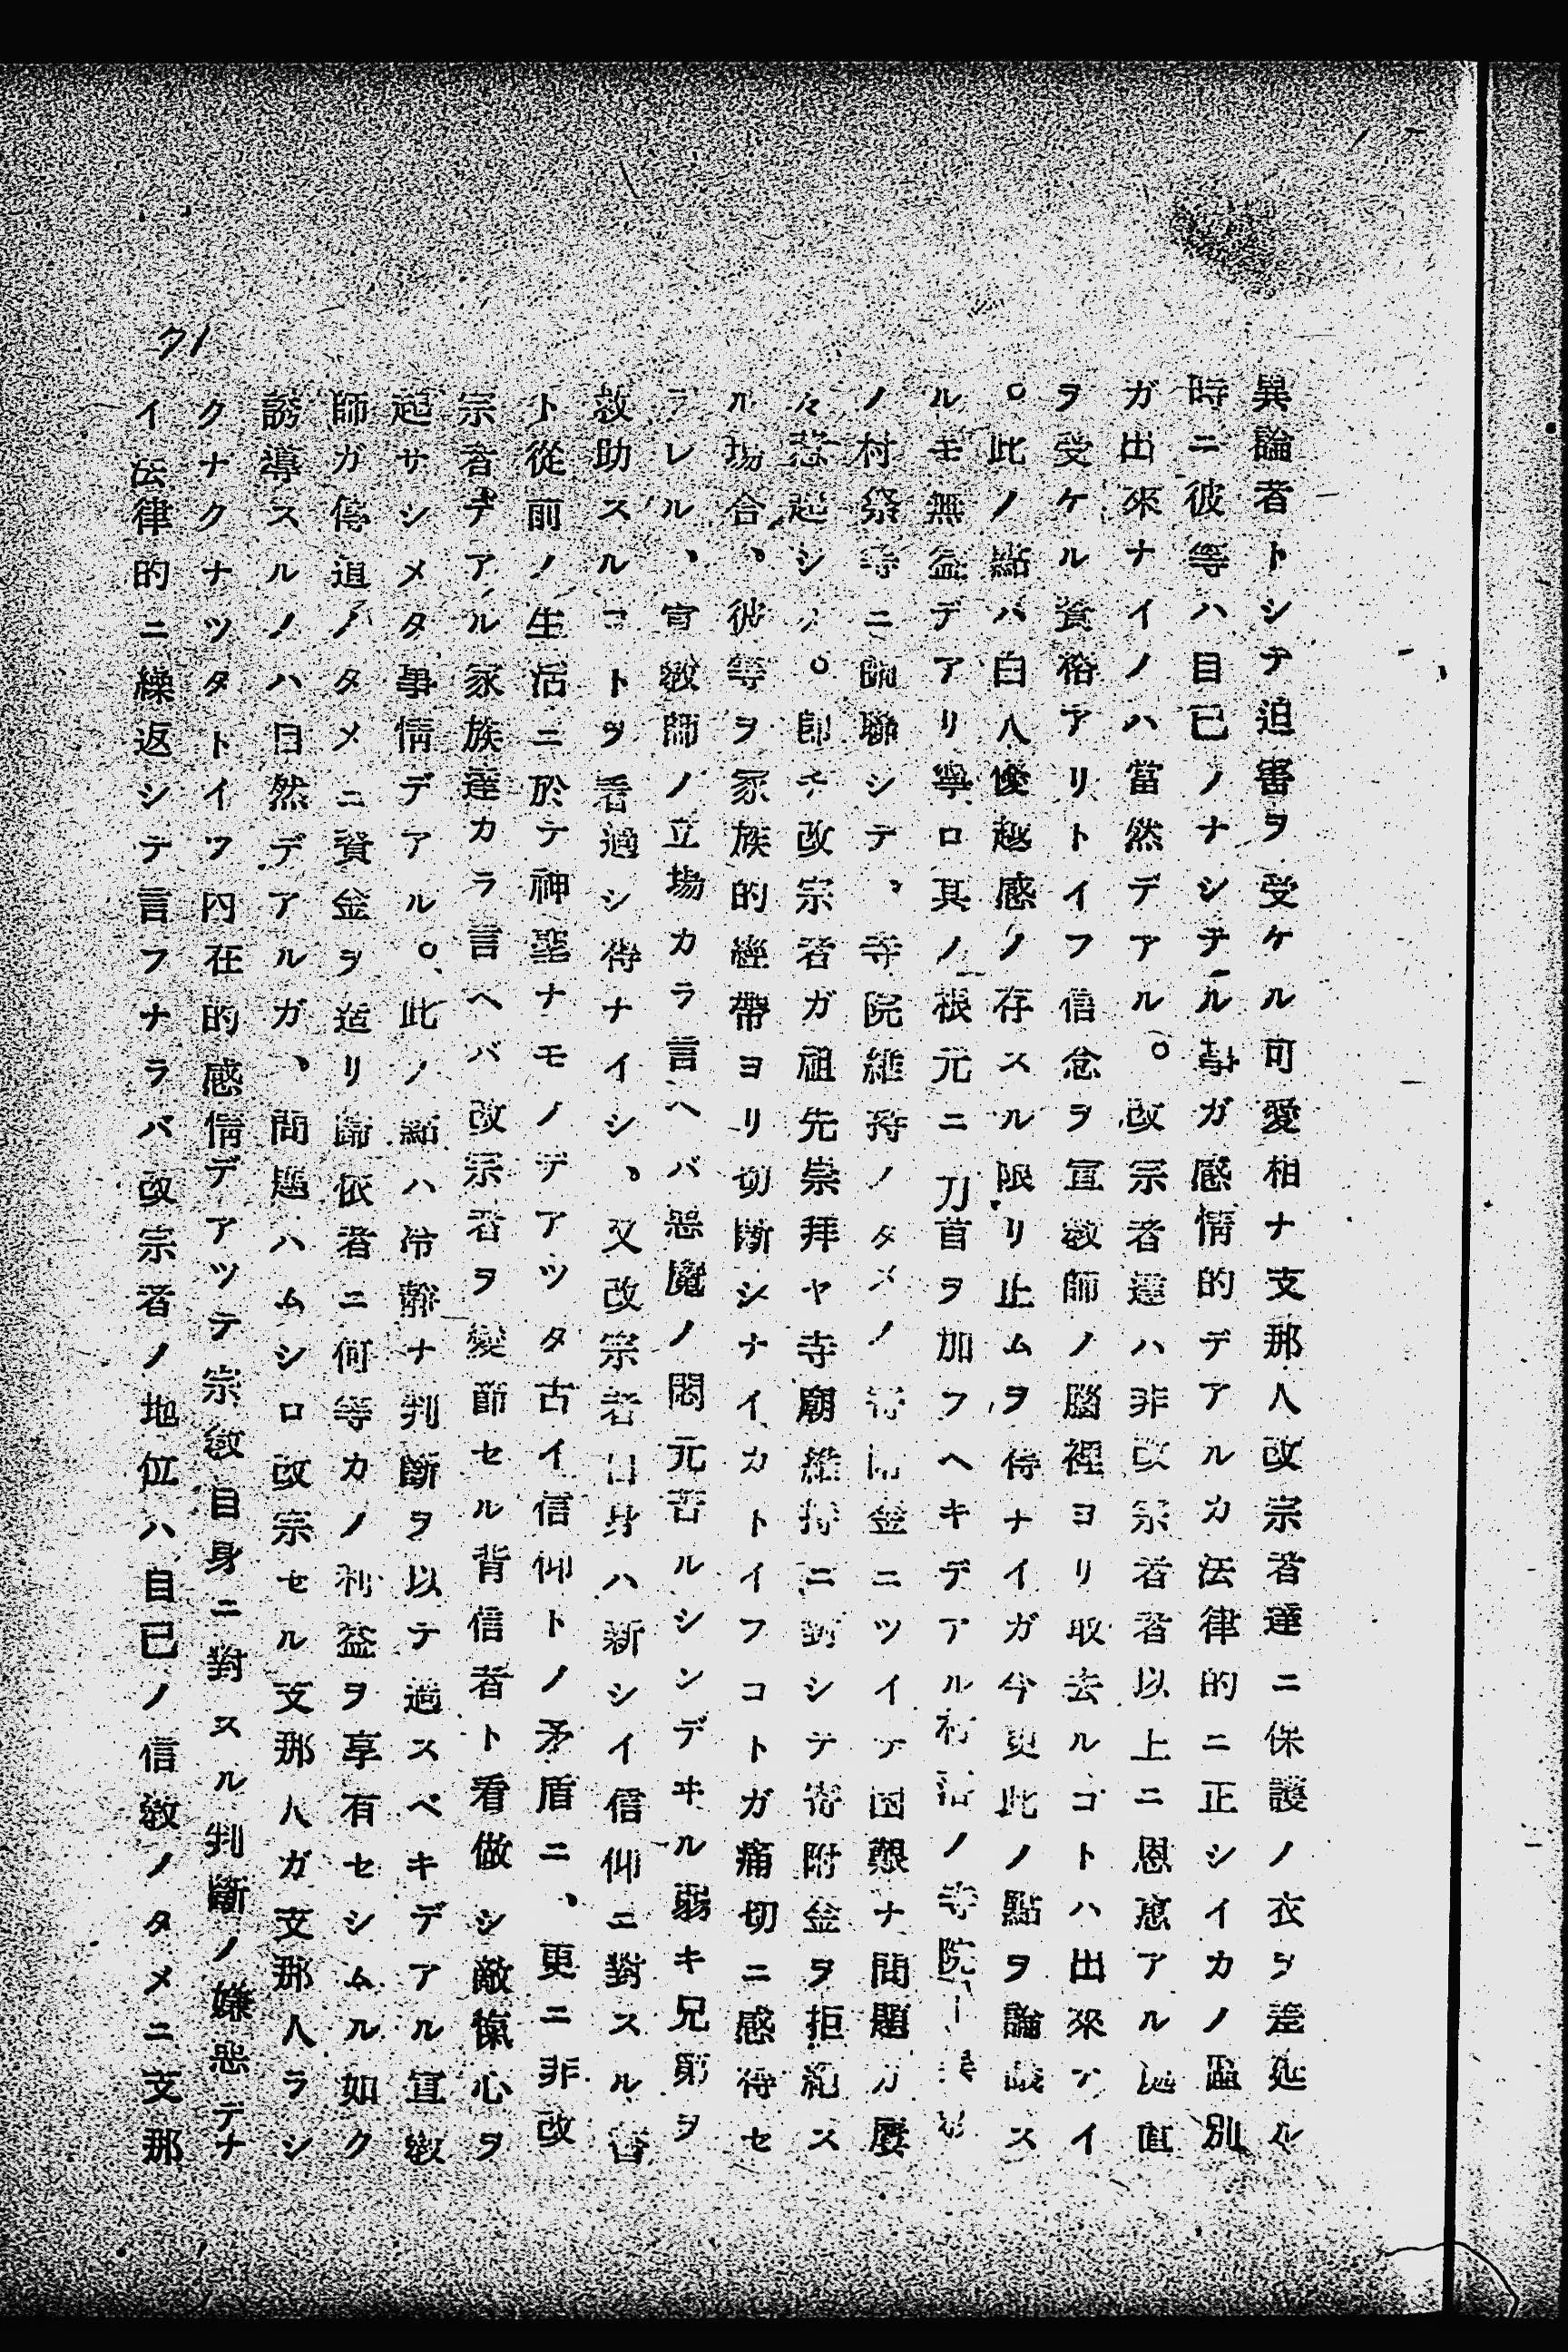 異論者トシテ迫害ヲ受ケル可愛相ナ支那人改宗者達ニ保護ノ衣ヲ差延ル
時ニ彼等ハ自己ノナシヲル事ガ感情的デアルカ法律的ニ正シイカノ區別
ガ出來ナイノハ當然デアル。改宗者達ハ非改宗者者以上ニ恩惠アル
ヲ受ケル資格アリトイフ信念ヲ宣敎師ノ腦裡ヨリ取去ルコトハ出來ナイ
。此ノ點バ白人優越感ノ存スル限リ止ムヲ得ナイガ今更此ノ點ヲ論議ス
ルモ無益デアリ寧ロ其ノ根元ニ刀首ヲ加フヘキデアル村落ノ寺院
ノ村祭等ニ關聯シテ、寺院維持ノタメノ寄附金ニツイテ困難ナ問題ガ屢
々惹起シ。卽チ改宗者ガ祖先崇拜ヤ寺廟維持ニ對シテ寄附金ヲ拒絕ス
ル場合、彼等ヲ家族的經帶ヨリ切斷シナイカトイフコトガ痛切ニ感得セ
ラレル、宣敎師ノ立場カラ言ヘバ惡魔ノ悶元苦ルシンデヰル弱キ兄弟ヲ
救助スルコトヲ看過シ得ナイシ、又改宗者自身ハ新シイ信仰ニ對スル
ト從前ノ生活ニ於テ神聖ナモノデアツタ古イ信仰トノ矛盾ニ、更ニ非改
宗者デアル家族達カラ言ヘバ改宗者ヲ變節セル背信者ト看做シ敵愾心ヲ
起サシメタ事情デアル。此ノ點ハ冷靜ナ判斷ヲ以テ過スベキデアル宣敎
師ガ傳道ノタメニ資金ヲ造リ歸依者ニ何等カノ利益ヲ享有セシムル如ク
誘導スルノハ自然デアルガ、問題ハムシロ改宗セル支那人ガ支那人ラシ
クナクナツタトイフ內在的感情デアツテ宗敎自身ニ對スル判斷ノ嫌惡デナ
イ法律的ニ繰返シテ言フナラバ改宗者ノ地位ハ自己ノ信敎ノタメニ支那
71